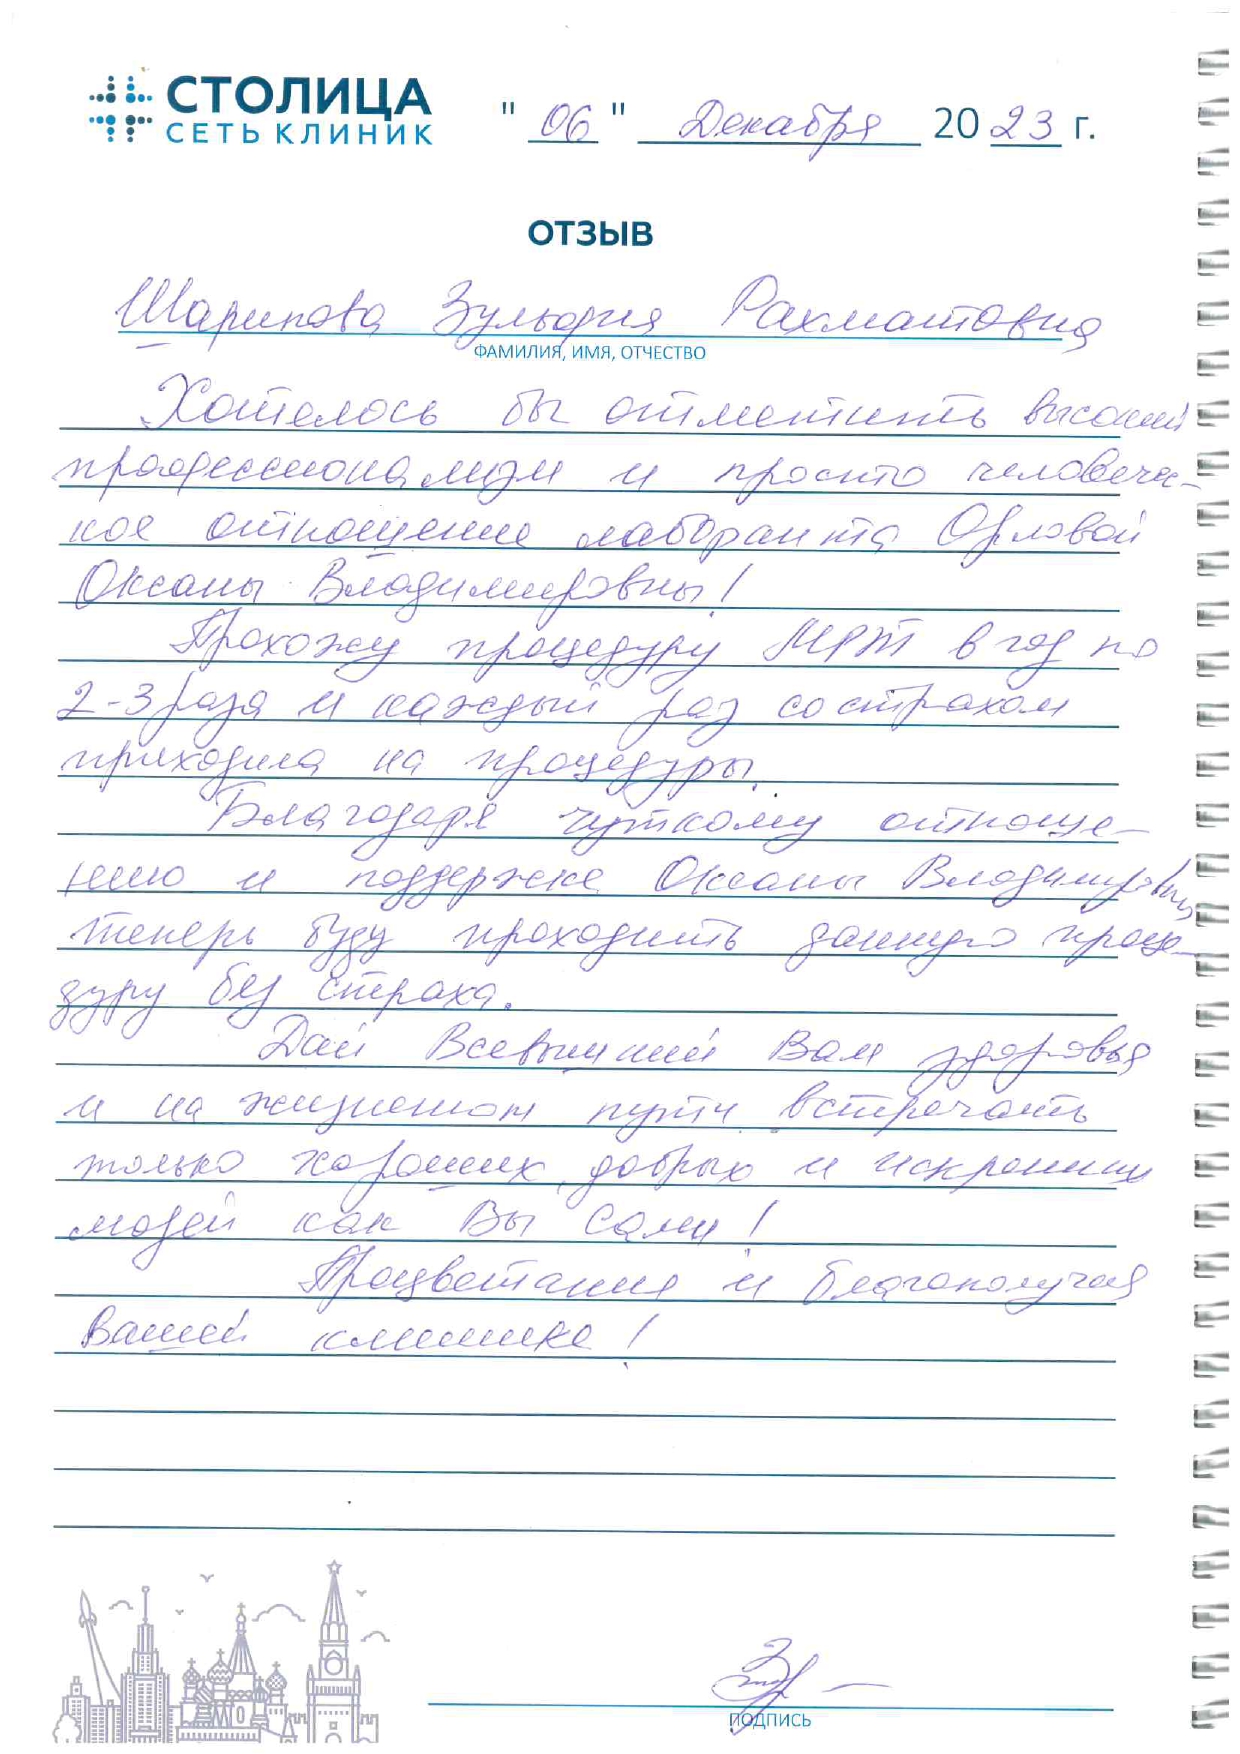 СТОЛИЦА
СЕТЬ КЛИНИК
" 06 " Декабря 2023 г.
ОТЗЫВ
Шарипова Зульфия Рахматовна
ФАМИЛИЯ, ИМЯ, ОТЧЕСТВО
Хотелось бы отметить высокий
профессионализм и просто человечес-
кое отношение лаборанта Орловой
Оксаны Владимировны!
Прохожу процедуру МРТ в год по
2-3 раза и каждый раз со страхом
приходила на процедуры.
Благодаря чуткому отноше-
нию и поддержке Оксаны Владимировны
теперь буду проходить данную проце-
дуру без страха.
Дай Всевышний Вам здоровья
и на жизненом пути встречать
только хороших, добрых и искренних
людей как Вы сами!
Процветания и благополучия
вашей клинике!
ПОДПИСЬ